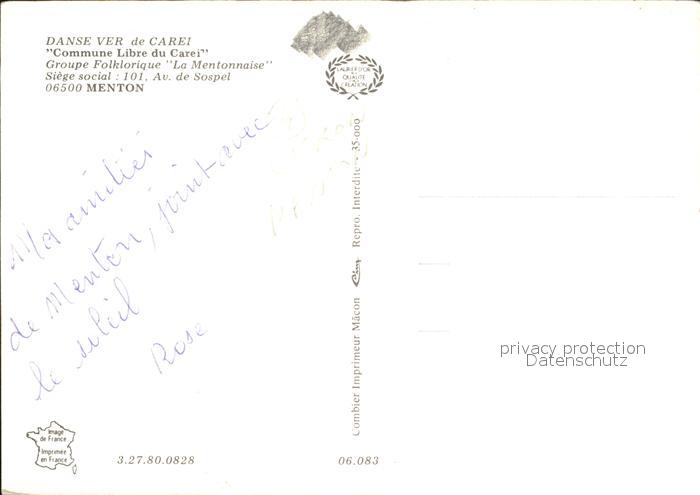 DANSE VER de CAREI
"Commune Libre du Carei"
Groupe Folklorique "La Mentonnaise"
Siège social : 101, Av. de Sospel
06500 MENTON
LAURIER D'OR
DE LA
QUALITÉ
CRÉATION
Ma amitiés
de Menton, joint avec
le soleil
Rose
Combier Imprimeur Mâcon Cim Repro. Interdite - 35-000
privacy protection
Datenschutz
Image
de France
Imprimée
en France
3.27.80.0828
06.083